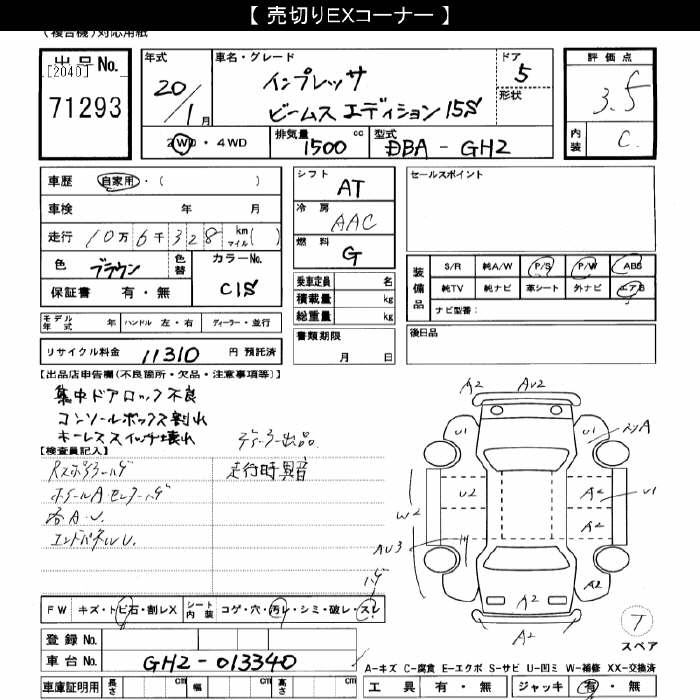 【 売切りEXコーナー 】
(複合機)対応用紙
出品No.
[2040]
71293
年式
20/1月
車名・グレード
インプレッサ
ビームス エディション15S
ドア
5
形状
評価点
3.5
内装
C
2WD・4WD
排気量 1500 cc
型式 DBA - GH2
車歴 自家用・( )
車検 年 月
走行 10万6千328 km マイル( )
色 ブラウン
色替
カラーNo. C1S
保証書 有・無
モデル年式 年 ハンドル 左・右 ディーラー・並行
リサイクル料金 11310 円 預託済
シフト AT
冷房 AAC
燃料 G
乗車定員 名
積載量 kg
総重量 kg
書類期限
月 日
セールスポイント
装備品
S/R 純A/W P/S P/W ABS
純TV 純ナビ 革シート 外ナビ エアB
ナビ型番:
後日品
【出品店申告欄(不良箇所・欠品・注意事項等)】
集中ドアロック不良
コンソールボックス割れ
キーレススイッチ壊れ
ディーラー出品
【検査員記入】
走行時異音
各A.U.
エンドパネルU.
A2 AU2
U1 U1
U2 A2 U1
W2 A2
AU3
A2
A2
A2
ハゲ
FW キズ・トビ石・割レX シート内装 コゲ・穴・汚レ・シミ・破レ・スレ
登録No.
車台No. GH2-013340
車庫証明用 長さ cm 幅 cm 高さ cm
T
スペア
A-キズ C-腐食 E-エクボ S-サビ U-凹ミ W-補修 XX-交換済
工具 有・無 ジャッキ 有・無